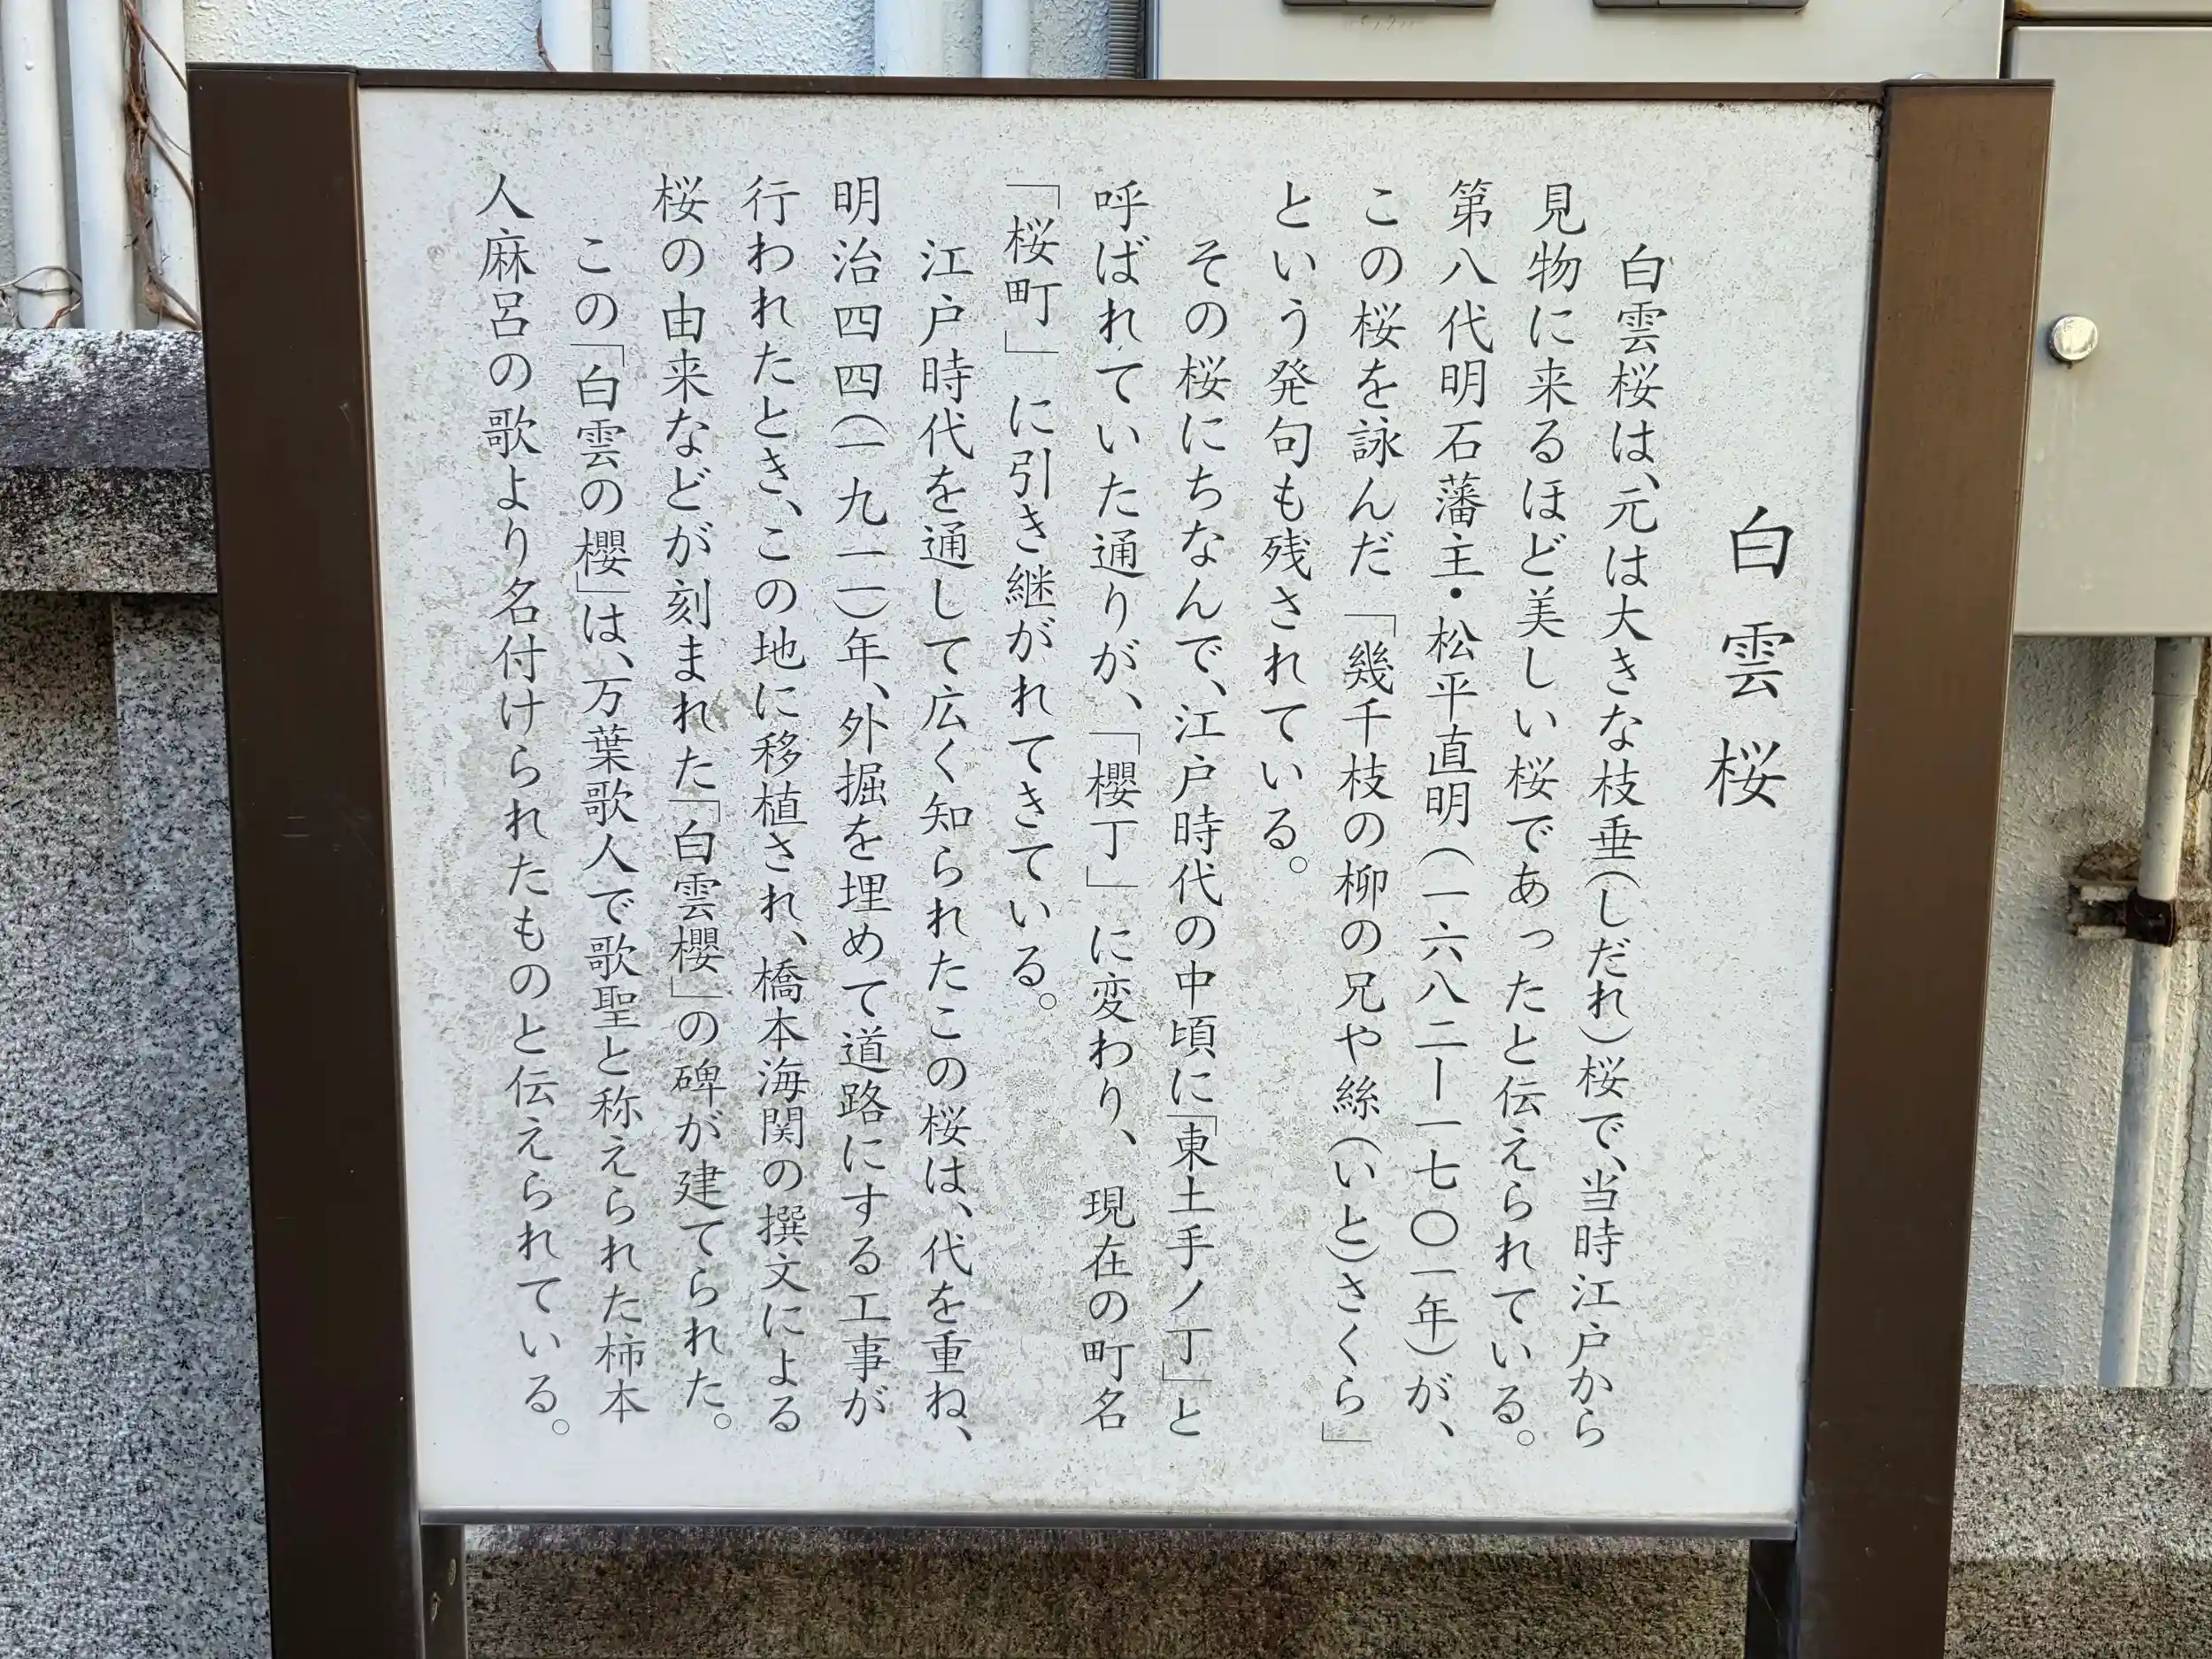 白雲桜
白雲桜は、元は大きな枝垂(しだれ)桜で、当時江戸から
見物に来るほど美しい桜であったと伝えられている。
第八代明石藩主・松平直明(一六八二ー一七〇一年)が、
この桜を詠んだ「幾千枝の柳の兄や絲(いと)さくら」
という発句も残されている。
その桜にちなんで、江戸時代の中頃に「東土手ノ丁」と
呼ばれていた通りが、「櫻丁」に変わり、現在の町名
「桜町」に引き継がれてきている。
江戸時代を通して広く知られたこの桜は、代を重ね、
明治四四(一九一一)年、外掘を埋めて道路にする工事が
行われたとき、この地に移植され、橋本海関の撰文による
桜の由来などが刻まれた「白雲櫻」の碑が建てられた。
この「白雲の櫻」は、万葉歌人で歌聖と称えられた柿本
人麻呂の歌より名付けられたものと伝えられている。